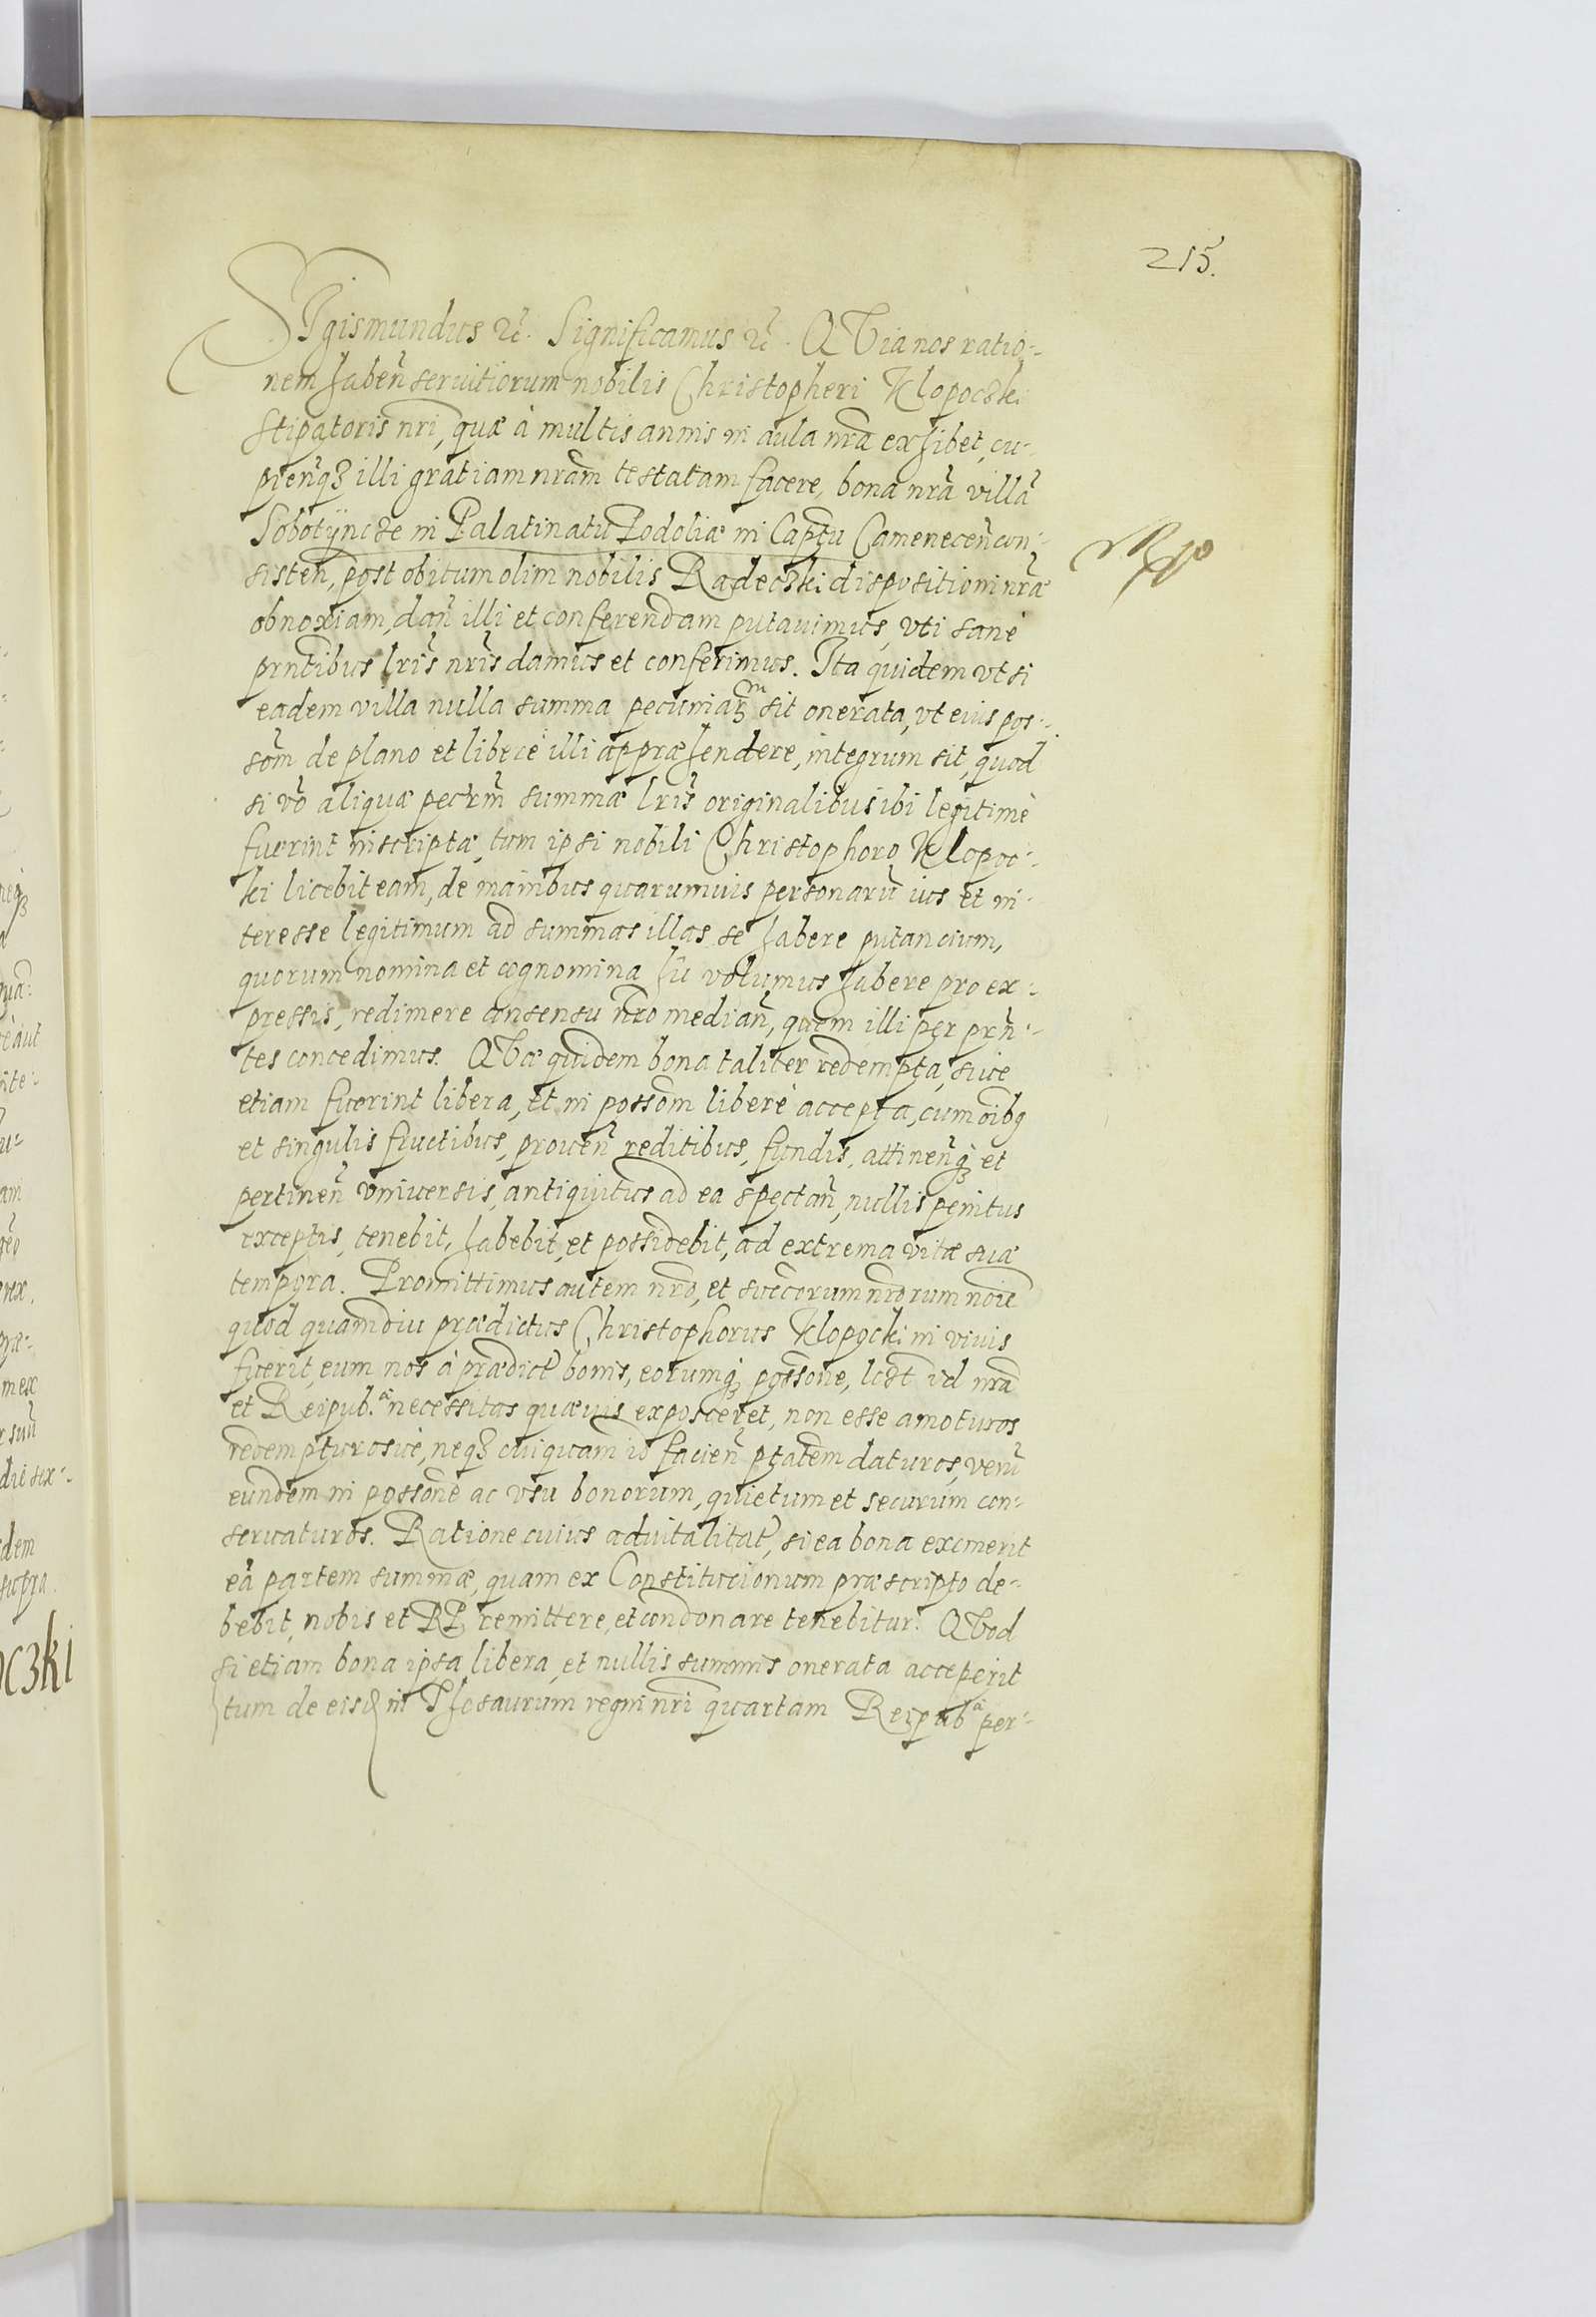 215.
SIgismundus &c̃. Significamus &c̃. QVia nos ratio-
nem haben̄ seruitiorum nobilis Christopheri Klopoczki
Stipatoris nr̃i, quæ à multis annis in aula nrã exhibet, cu-
pien̄q3 illi gratiam nrãm testatam facere, bona nrã villã
Sobotÿncze in Palatinatu Podoliæ in Captu Camenecen̄ con-
sisten̄, post obitum olim nobilis Radeczki dispositioni nrãe
obnoxiam, dan̄ illi et conferendam putauimus, vti sanè
prñtibus lrĩs nrĩs damus et conferimus. Ita quidem vt si
eadem villa nulla summa pecuniar3m sit onerata, vt eius pos-
som̃ de plano et liberè illi appræhendere, integrum sit, quod
si vo᷉ aliquæ pecrm̃ summæ lrĩs originalibus ibi legitimè
fuerint inscriptæ, tum ipsi nobili Christophoro Klopoc-
ki licebit eam, de manibus quarumuis personarũ ius et in-
teresse legitimum ad summas illas se habere putancium,
quorum nomina et cognomina hĩc volumus habere pro ex-
pressis, redimere consensu nrõ median̄, quem illi per prñ-
tes concedimus. QVæ quidem bona taliter redempta, siue
etiam fuerint libera, et in possom̃ liberè accepta, cum oĩbq
et singulis fructibus, prouen̄ reditibus, fundis, attinen̄q3 et
pertinen̄ vniuersis, antiquitus ad ea spectan̄, nullis penitus
exceptis, tenebit, habebit, et possidebit, ad extrema vitæ suæ
tempora. Promittimus autem nrõ, et succorum nrõrum noĩe
quod quamdiu prædictus Christophorus Klopocki in viuis
fuerit, eum nos à prædict̃ bonis, eorumq3 possone, licet id nrã
et Reipub.ᵃᵉ necessitas quæuis exposceret, non esse amoturos
redempturosue, neq3 cuiquam id facien̄ ptatem̃ daturos, verũ
eundem in possone ac vsu bonorum, quietum et securum con-
seruaturos. Ratione cuius aduitalitat̃, si ea bona exemerit
eã partem summæ, quam ex Constitucionum præscripto de-
bebit, nobis et RP, remittere, et condonare tenebitur. QVod
si etiam bona ipsa libera, et nullis summis onerata acceperit
tum de eisd̃ in Thesaurum regni nr̃i quartam Reipubᵃᵉ per-